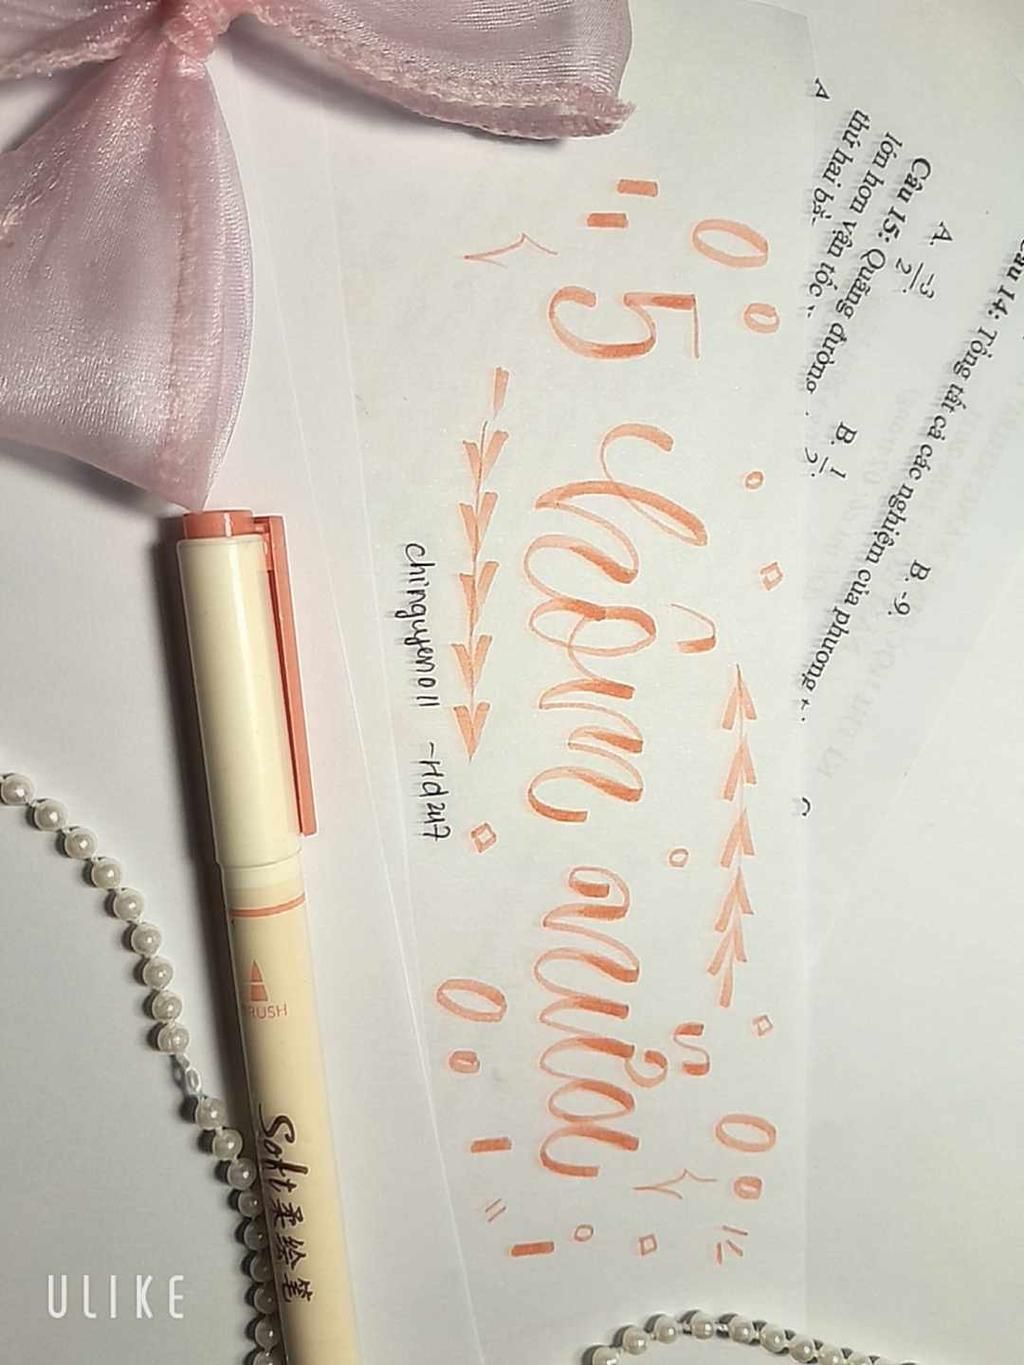 Câu 14: Tổng tất cả các nghiệm của phương
A. -3/2. B. -9.
Câu 15: Quãng đường
lớn hơn vận tốc
thứ hai
B. 1/2.
5 hôm nữa
chinguyen011 -Hd247
BRUSH
Soft 柔绘笔
ULIKE